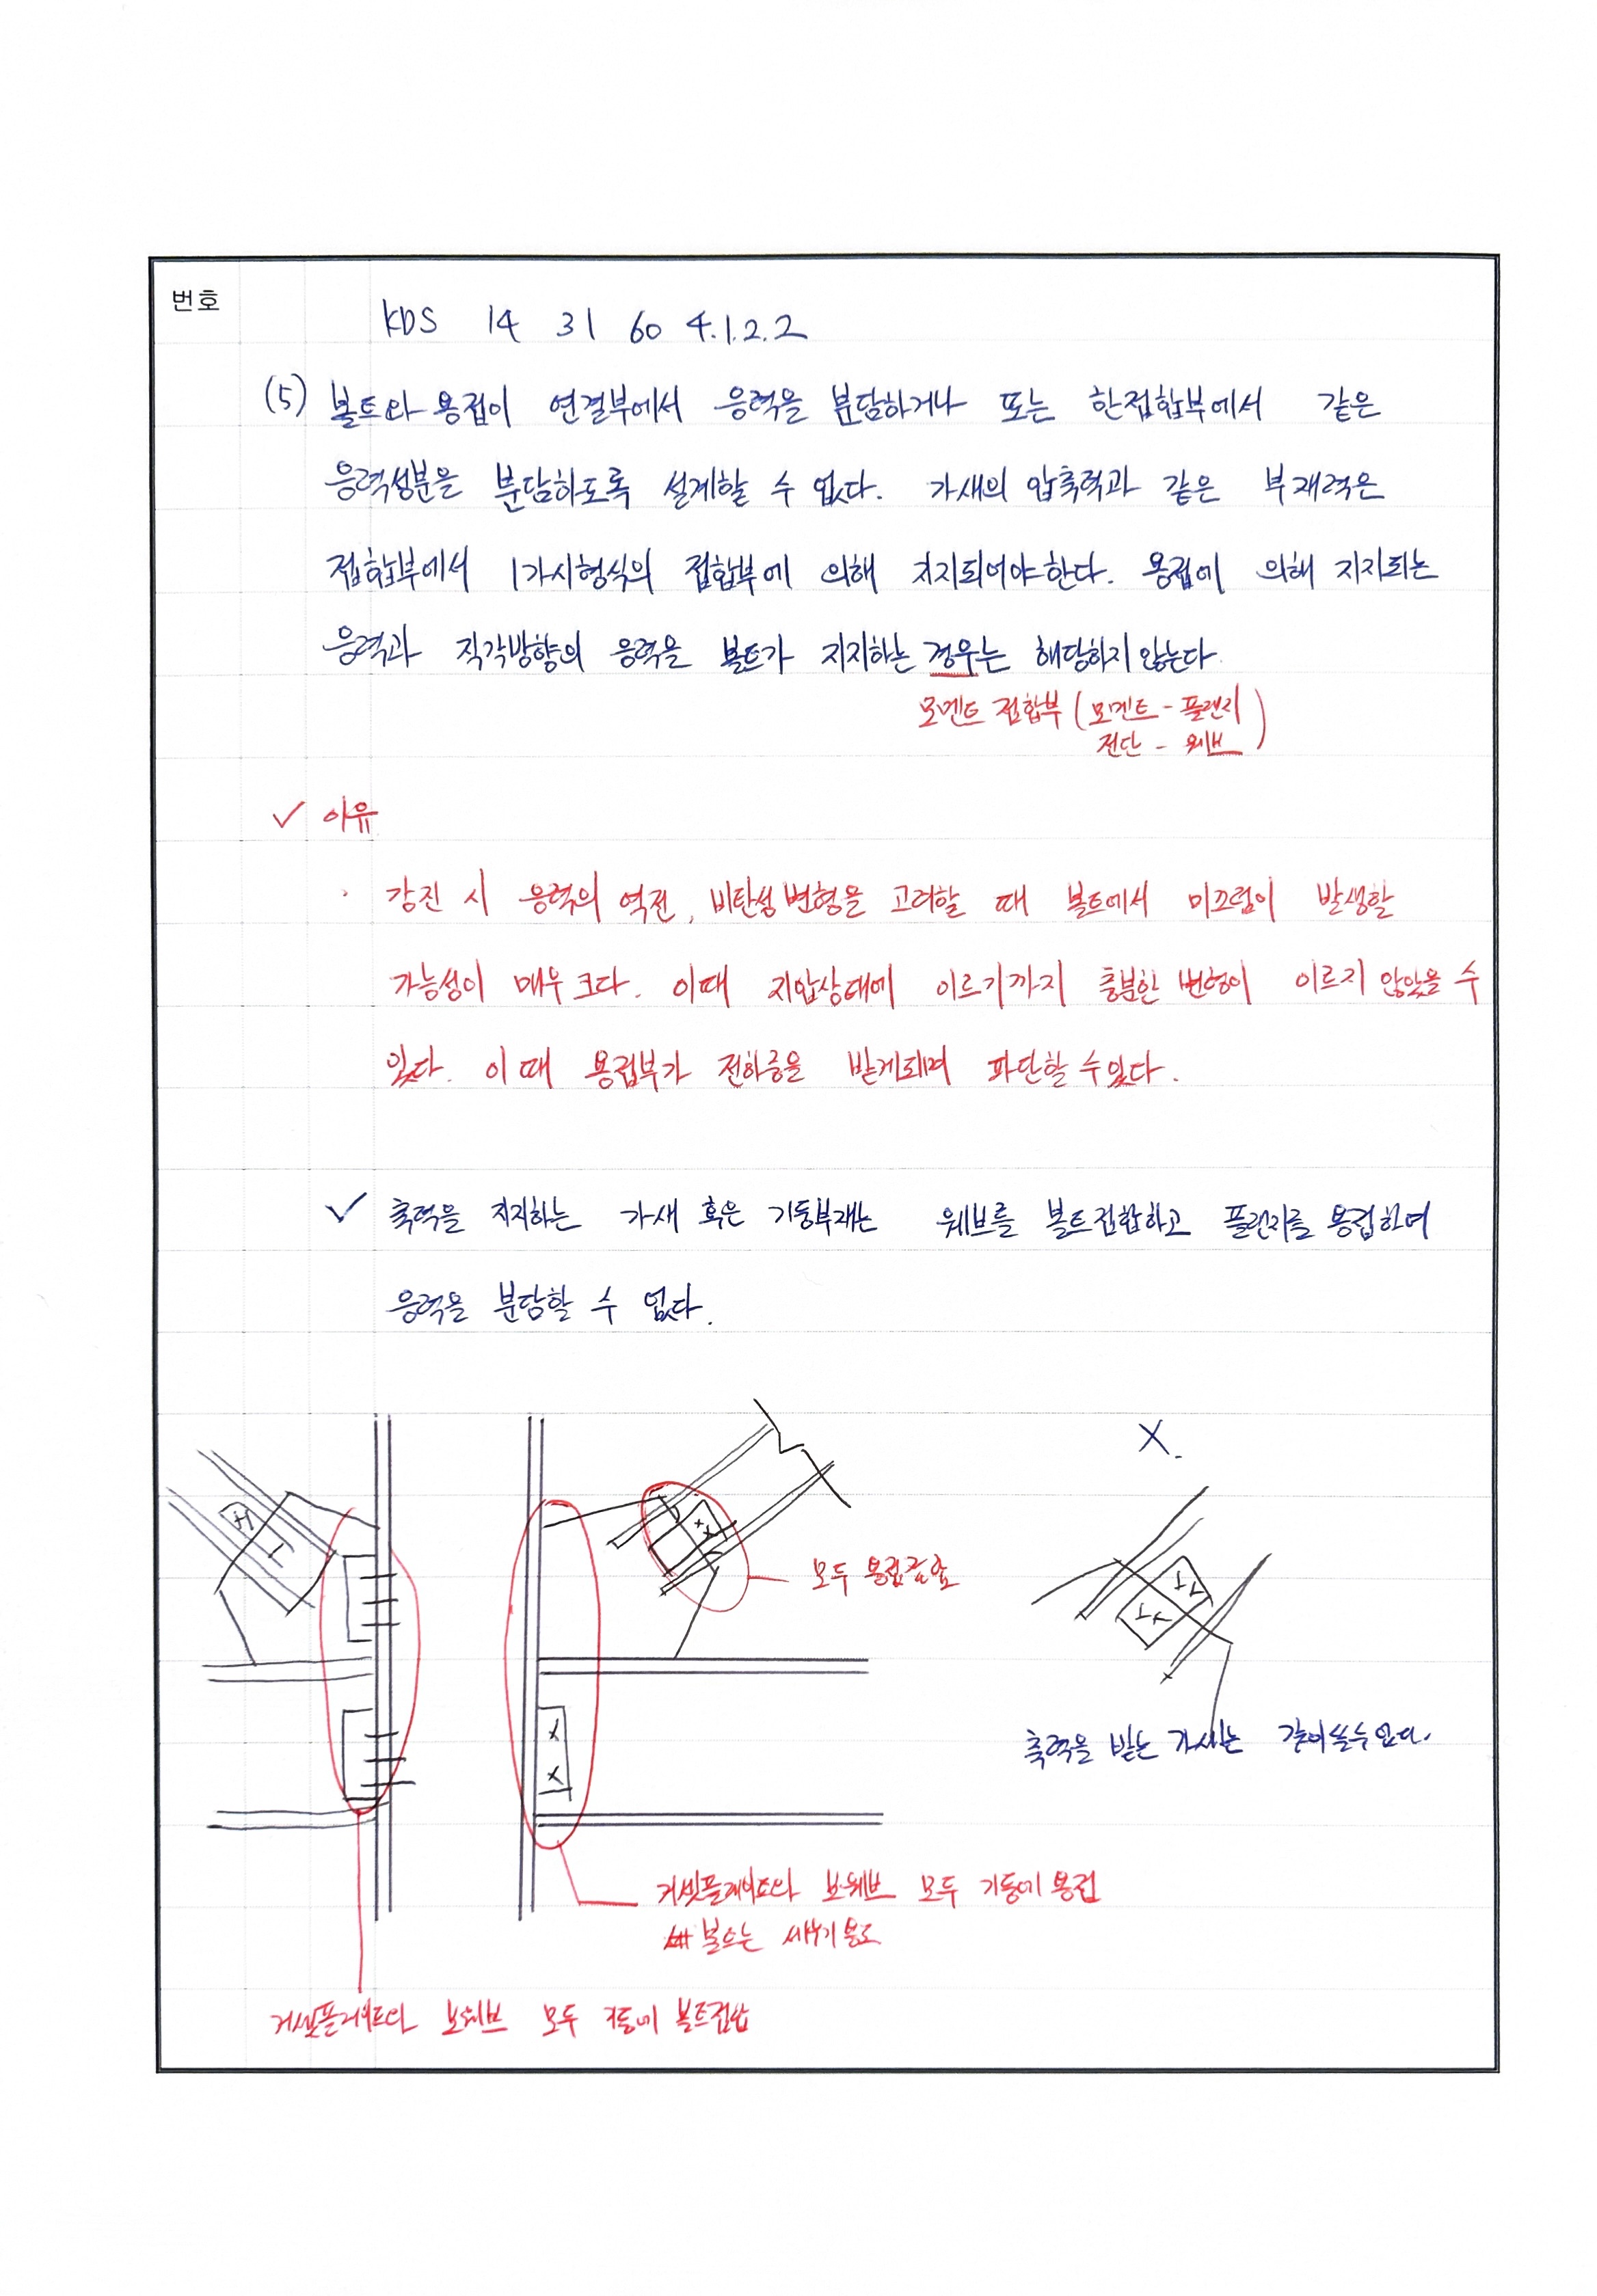 번호
KDS 14 31 60 4.1.2.2
(5) 볼트와 용접이 연결부에서 응력을 분담하거나 또는 한접합부에서 같은
응력성분을 분담하도록 설계할 수 없다. 가새의 압축력과 같은 부재력은
접합부에서 1가지형식의 접합부에 의해 지지되어야한다. 용접에 의해 지지되는
응력과 직각방향의 응력을 볼트가 지지하는 경우는 해당하지 않는다.
모멘트 접합부 (모멘트 - 플랜지
전단 - 웨브)
✓ 이유
· 강진 시 응력의 역전, 비탄성변형을 고려할 때 볼트에서 미끄럼이 발생할
가능성이 매우 크다. 이때 지압상태에 이르기까지 충분한 변형이 이르지 않았을 수
있다. 이 때 용접부가 전하중을 받게되며 파단할 수 있다.
✓ 축력을 지지하는 가새 혹은 기둥부재는 웨브를 볼트접합하고 플랜지를 용접하여
응력을 분담할 수 없다.
X.
모두 용접
축력을 받는 가새는 같이 쓸 수 없다.
거셋플레이트와 보웨브 모두 기둥에 용접
볼트는 세우기 용도
거셋플레이트와 보웨브 모두 기둥에 볼트접합